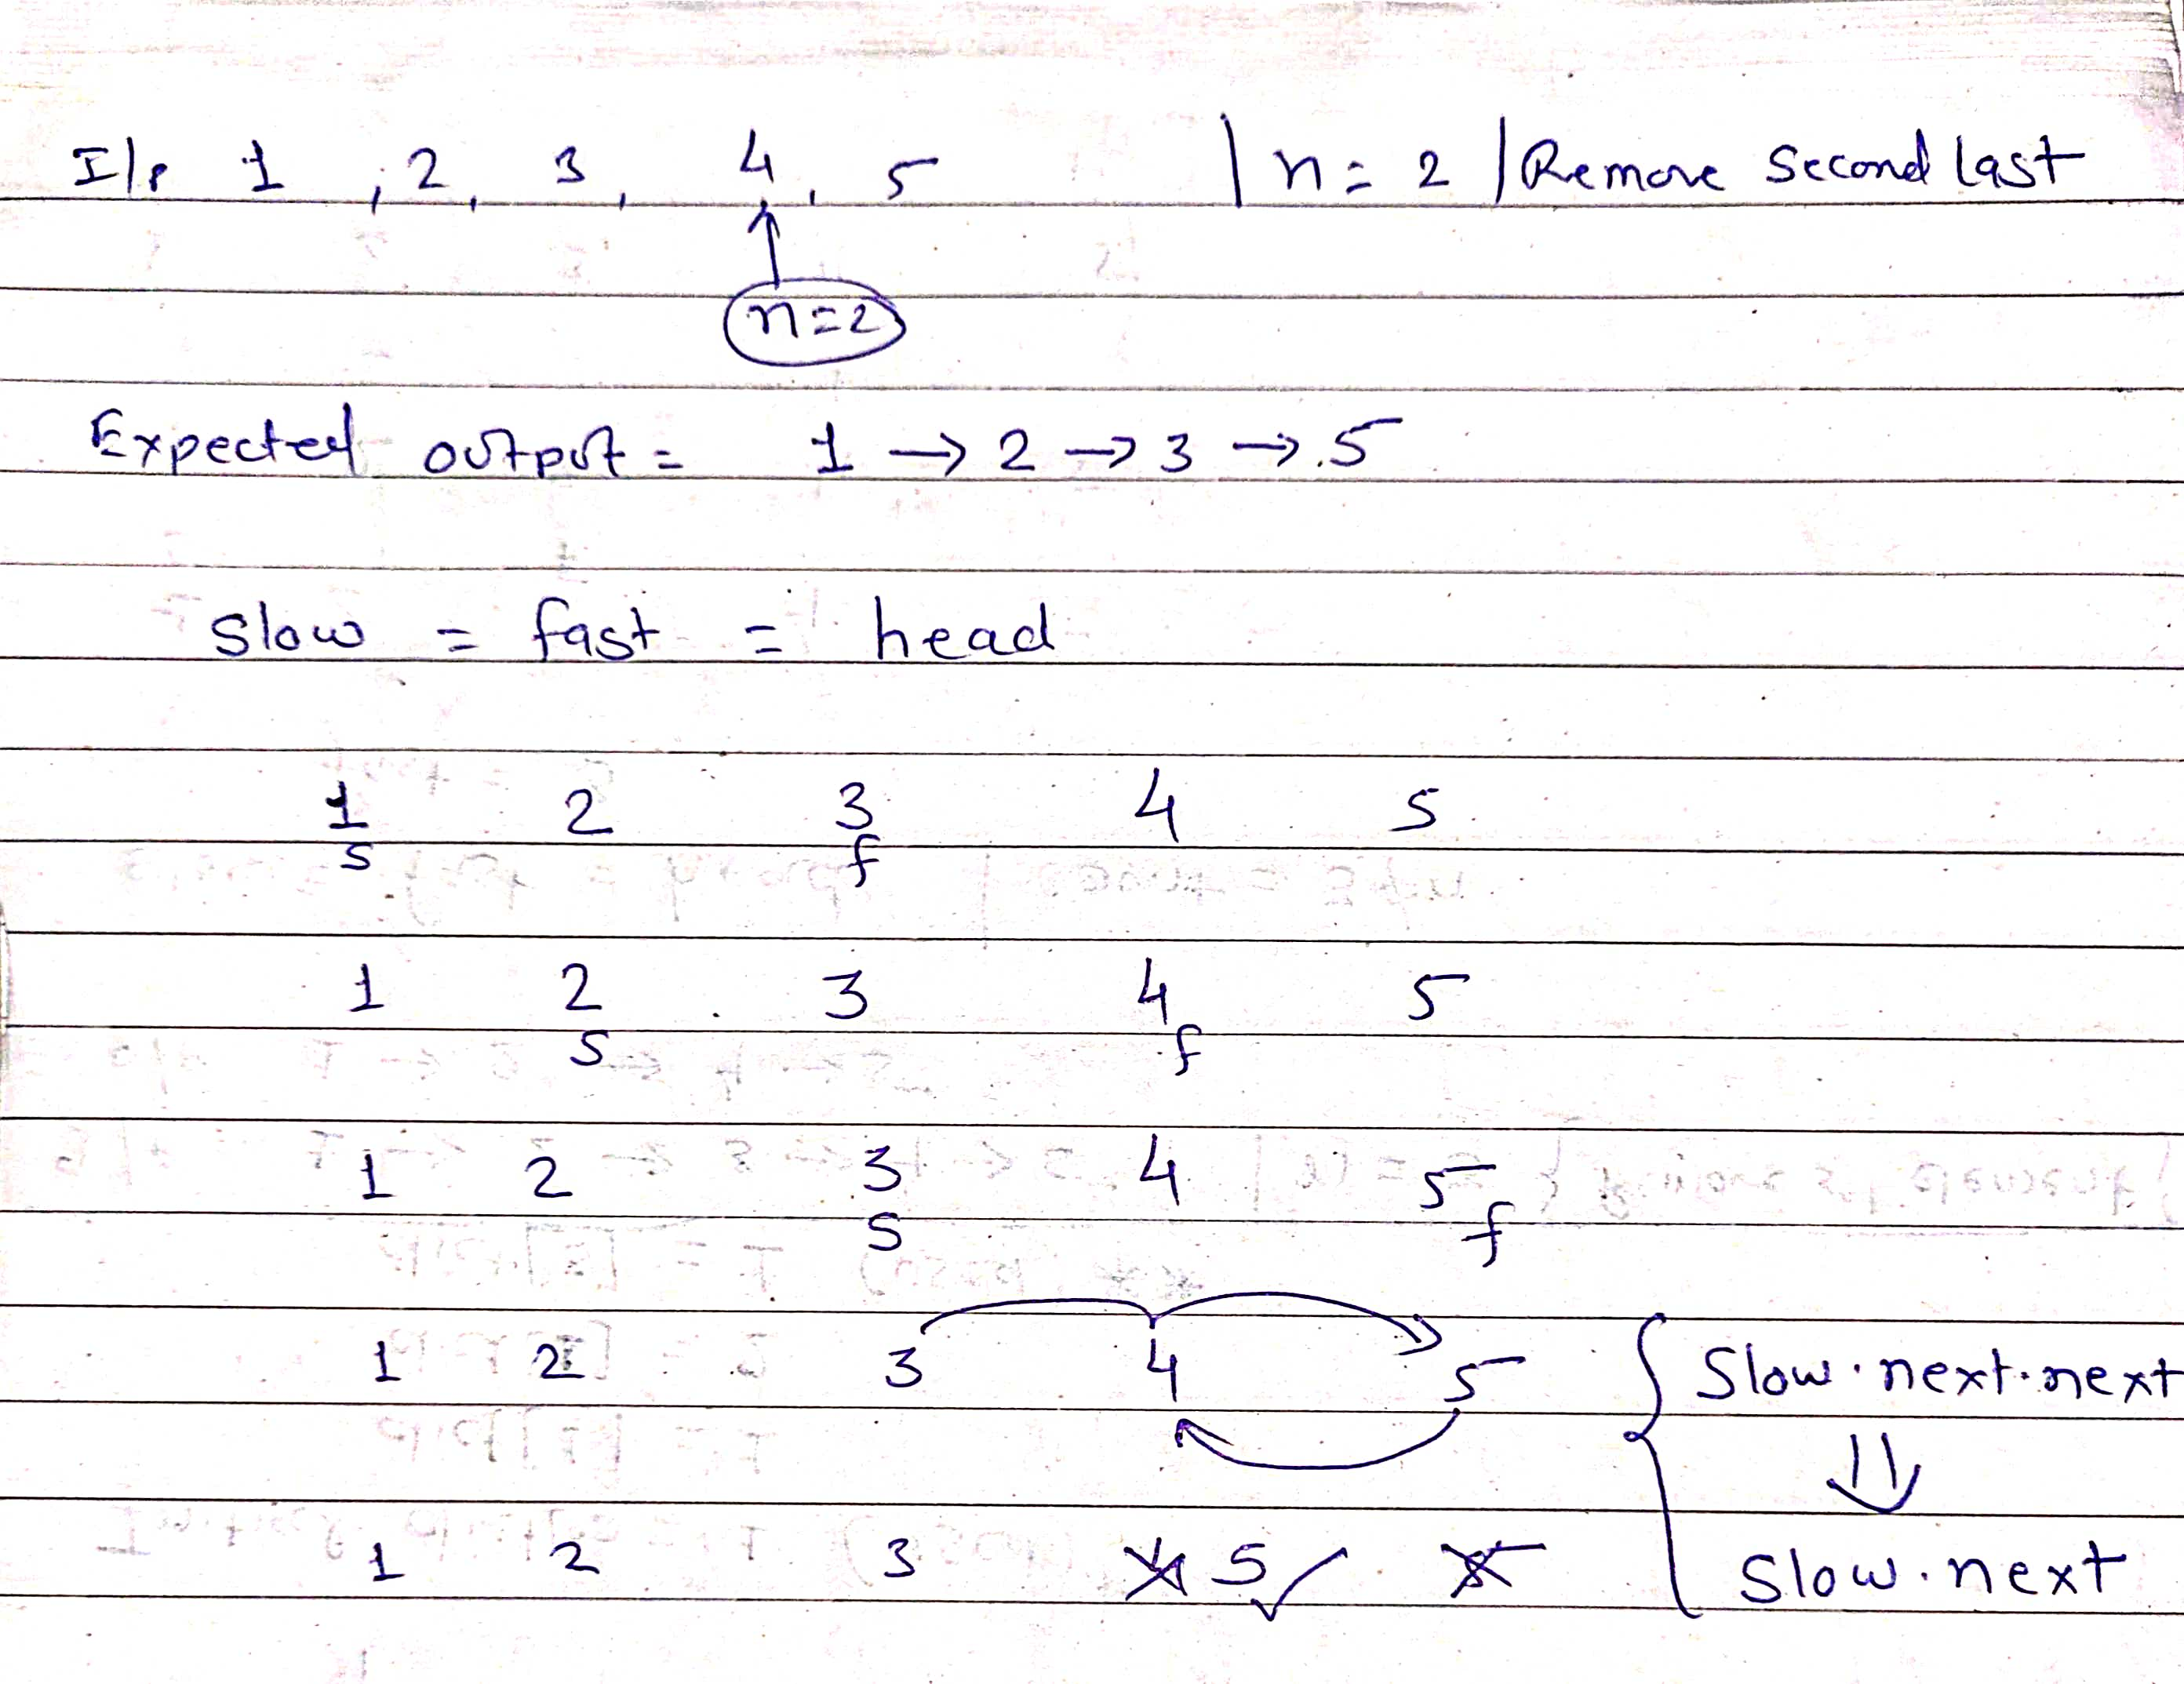 I/p 1 , 2, 3, 4, 5 | n = 2 | Remove Second last
n=2
Expected output = 1 → 2 → 3 → 5
Slow = fast = head
1 2 3 4 5
s f
1 2 3 4 5
s f
1 2 3 4 5
s f
1 2 3 4 5 Slow.next.next
⇓
1 2 3 4 5 5 Slow.next